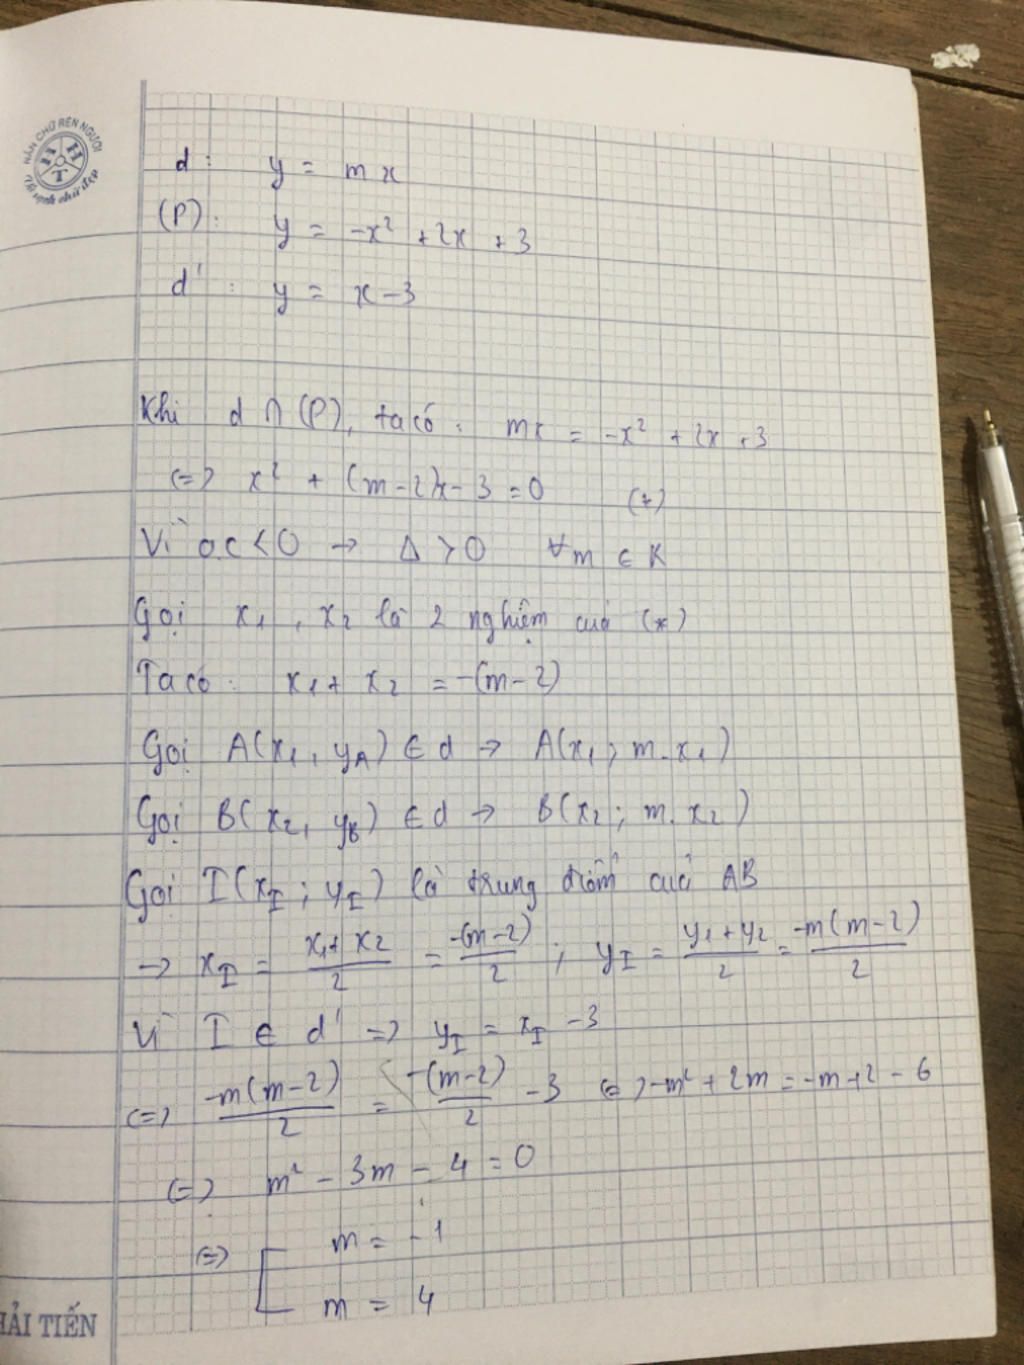 RÈN CHỮ RÈN NGƯỜI
H H T
d : y = mx
(P) : y = -x² + 2x + 3
d' : y = x - 3
Khi d ∩ (P), ta có : mx = -x² + 2x + 3
<=> x² + (m-2)x - 3 = 0 (*)
Vì ac < 0 → Δ > 0 ∀m ∈ R
Gọi x₁, x₂ là 2 nghiệm của (*)
Ta có : x₁ + x₂ = -(m-2)
Gọi A(x₁, y_A) ∈ d → A(x₁; m.x₁)
Gọi B(x₂, y_B) ∈ d → B(x₂; m.x₂)
Gọi I(x_I; y_I) là trung điểm của AB
→ x_I = (x₁ + x₂)/2 = -(m-2)/2 ; y_I = (y₁ + y₂)/2 = -m(m-2)/2
Vì I ∈ d' => y_I = x_I - 3
<=> -m(m-2)/2 = -(m-2)/2 - 3 <=> -m² + 2m = -m + 2 - 6
<=> m² - 3m - 4 = 0
<=> [ m = -1
m = 4
HẢI TIẾN